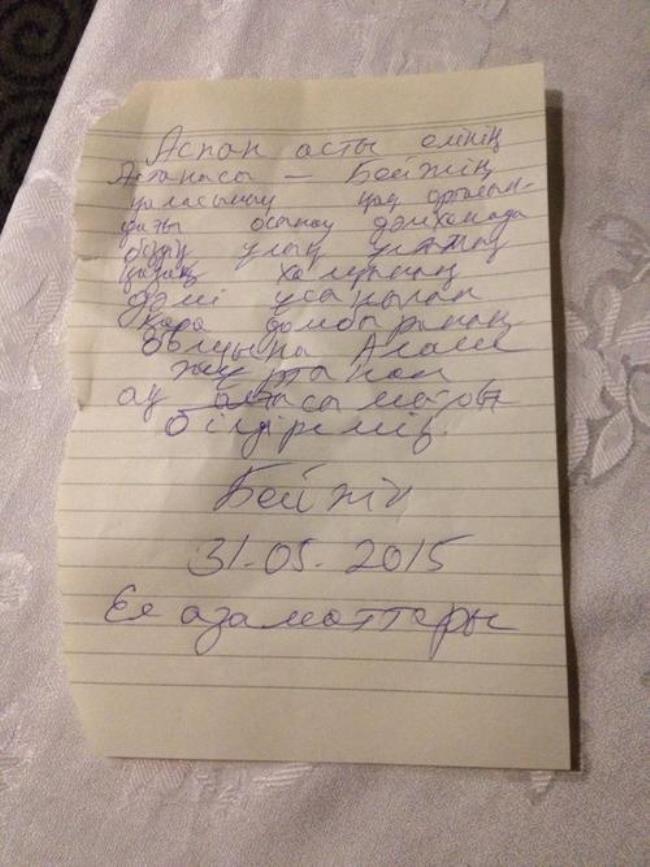 Аспан асты елінің
Астанасы — Бейжің
қаласының қақ ортасын-
дағы осынау дәмханада
біздің ұлың ұлттың
қазақ халқының
дәмі ұсынылған
Қара домбыраның
Алаш
жұртынан
ақ
білдіреміз.
Бейжің
31.05.2015
Ел азаматтары